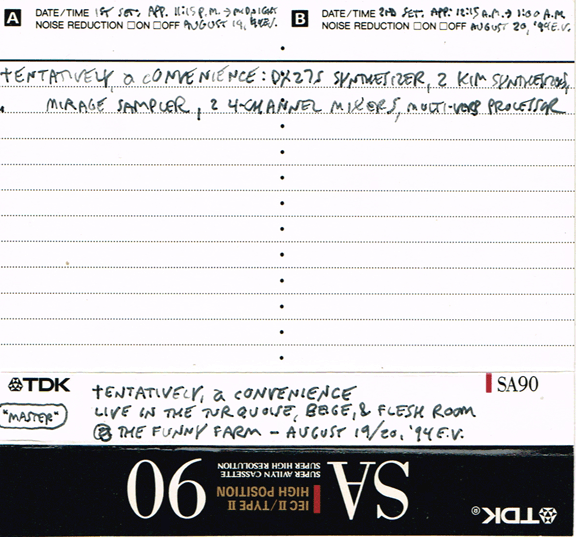 A DATE/TIME 1ST SET: APP. 11:15 P.M. → MIDNIGHT
NOISE REDUCTION □ON □OFF AUGUST 19,
B DATE/TIME 2ND SET: APP: 12:15 A.M. → 1:00 A.M.
NOISE REDUCTION □ON □OFF AUGUST 20, '94 E.V.
tENTATIVELY, a cONVENIENCE: DX27S SYNTHESIZER, 2 KIM SYNTHESIZERS,
MIRAGE SAMPLER, 2 4-CHANNEL MIXERS, MULTI-VERB PROCESSOR
TDK
SA90
"MASTER"
tENTATIVELY, a cONVENIENCE
LIVE IN THE TURQUOISE, BEIGE, & FLESH ROOM
@ THE FUNNY FARM - AUGUST 19/20, '94 E.V.
TDK®
SA 90
IEC II/TYPE II
HIGH POSITION
SUPER AVILYN CASSETTE
SUPER HIGH RESOLUTION